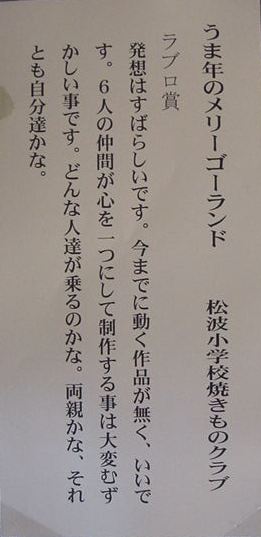 うま年のメリーゴーランド　　松波小学校焼きものクラブ
ラブロ賞
発想はすばらしいです。今までに動く作品が無く、いいで
す。６人の仲間が心を一つにして制作する事は大変むず
かしい事です。どんな人達が乗るのかな。両親かな、それ
とも自分達かな。